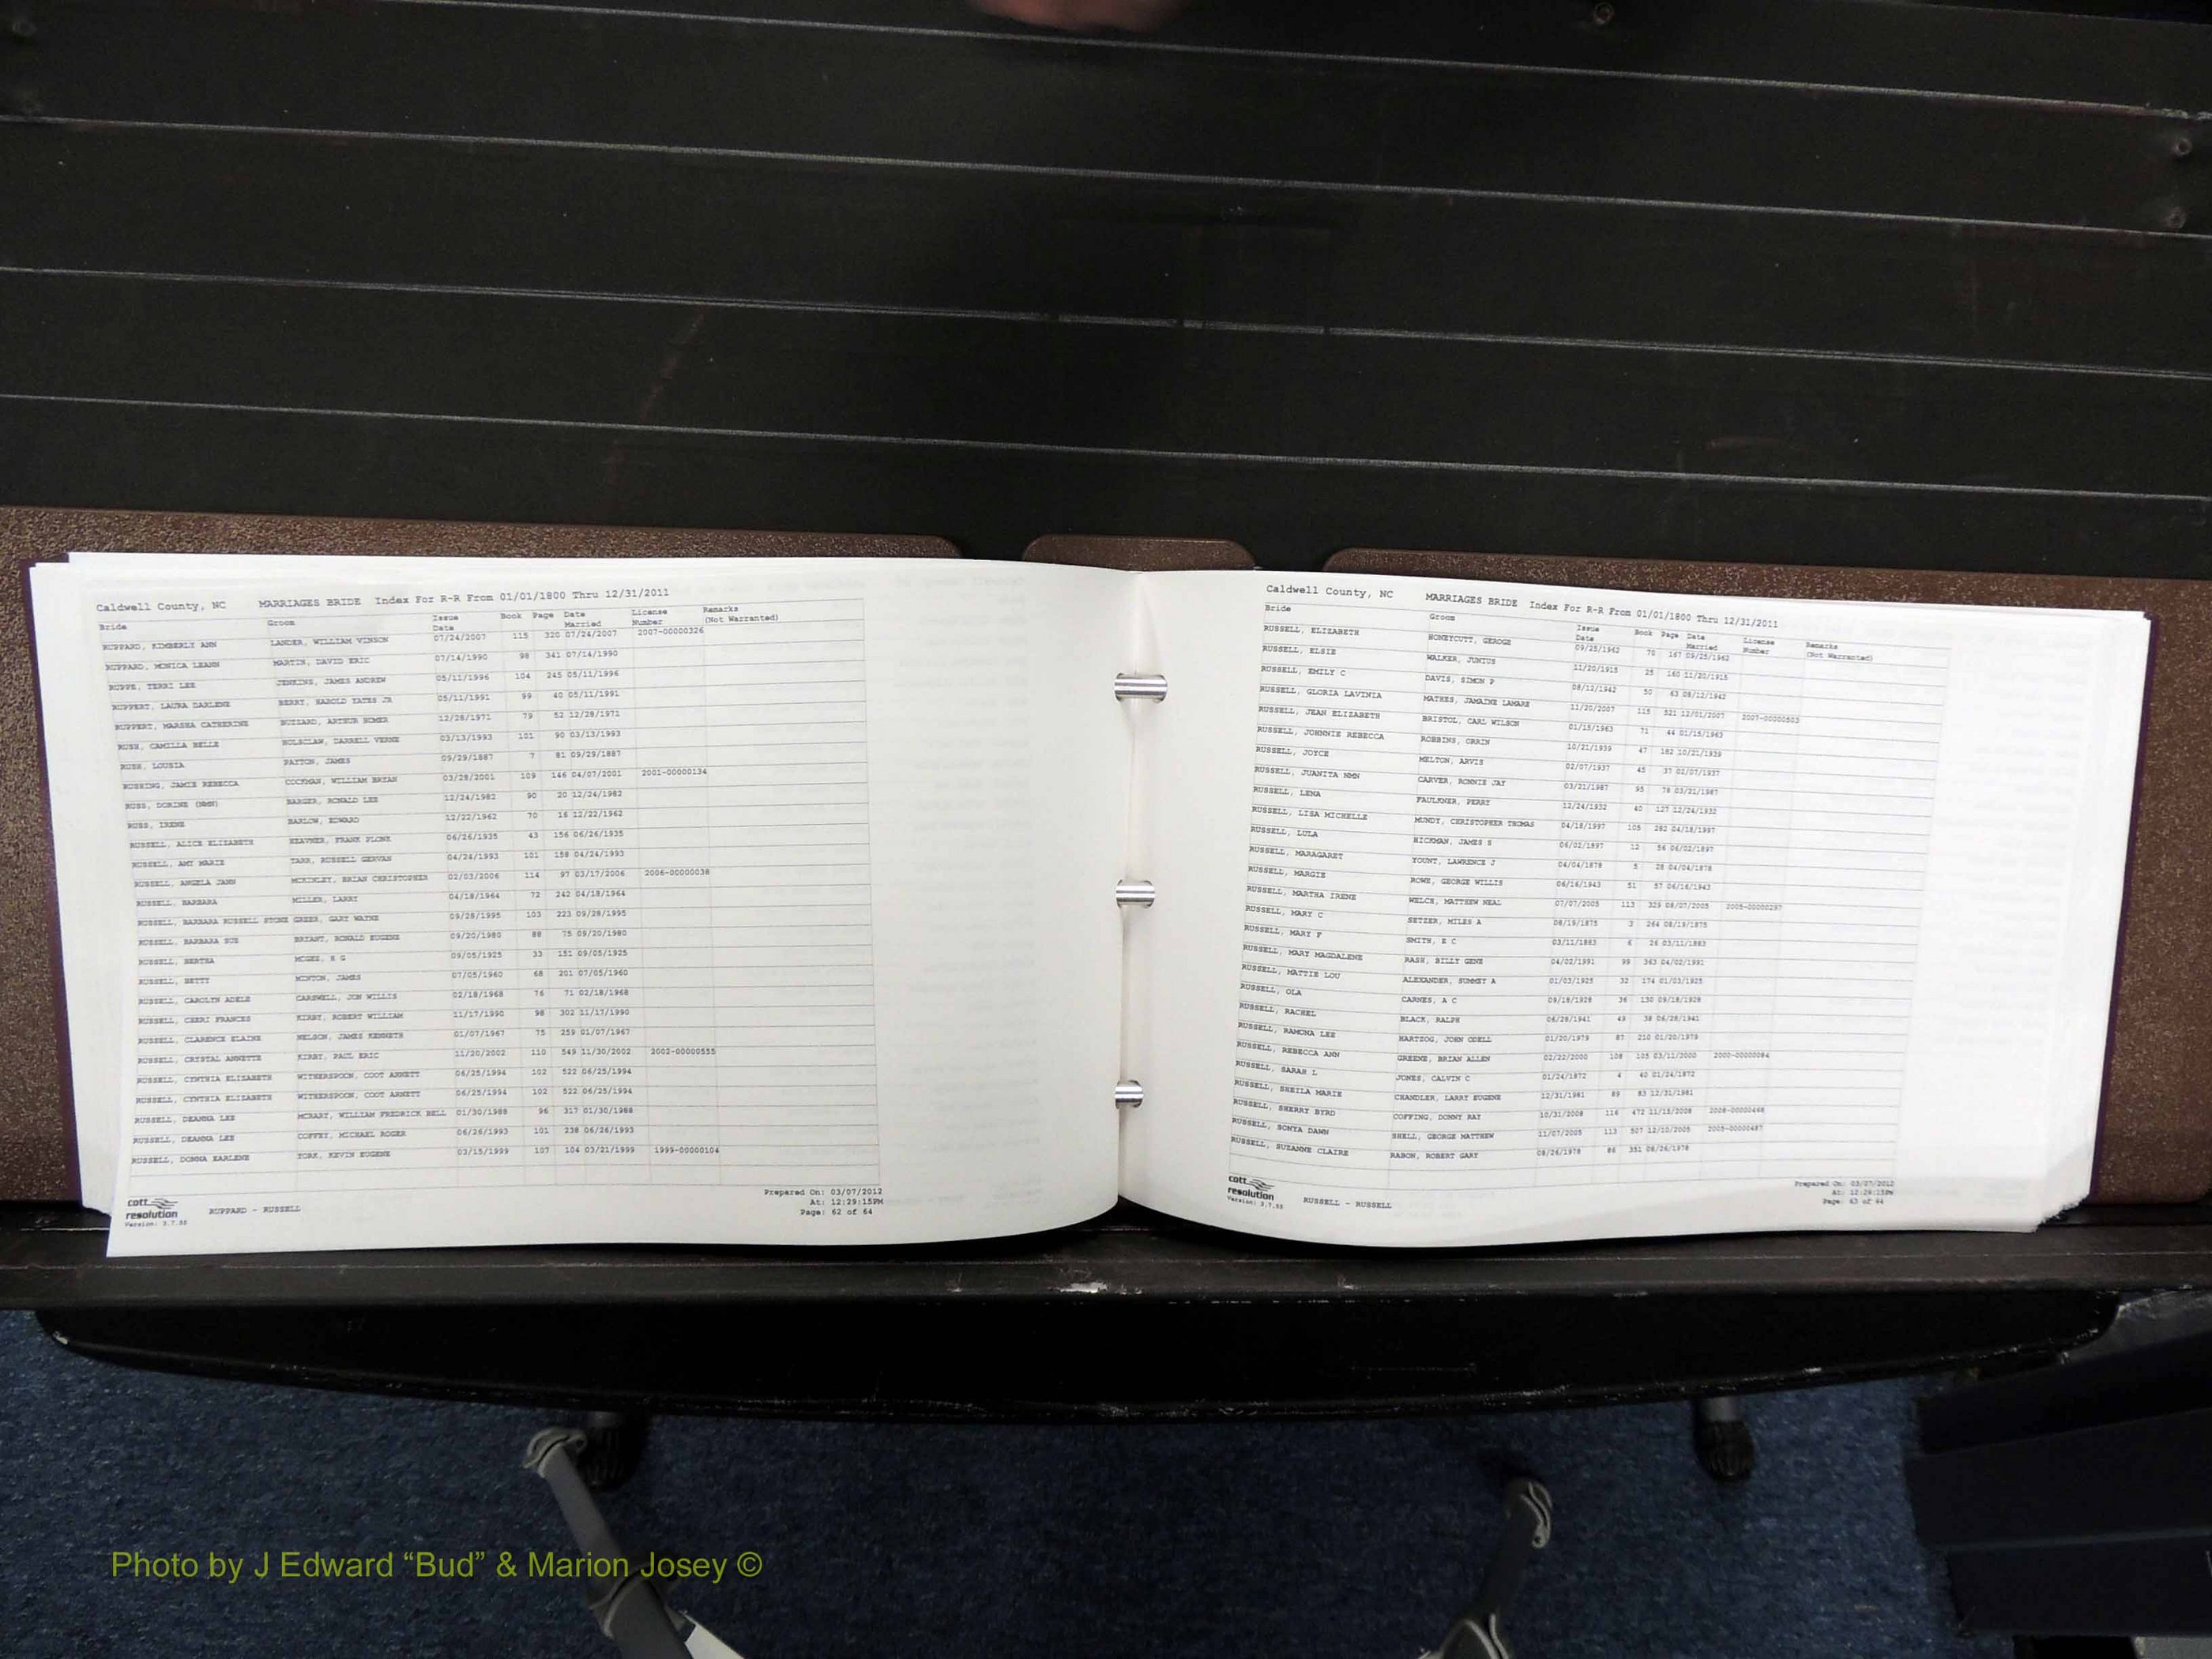 Caldwell County, NC MARRIAGES BRIDE Index For R-R From 01/01/1800 Thru 12/31/2011
Bride Groom Issue Date Book Page Date Married License Number Remarks (Not Warranted)
RUPPARD, KIMBERLY ANN LANDER, WILLIAM VINSON 07/24/2007 115 320 07/24/2007 2007-00000326
RUPPARD, MONICA LEANN MARTIN, DAVID ERIC 07/14/1990 98 341 07/14/1990
RUPPE, TERRI LEE JENKINS, JAMES ANDREW 05/11/1996 104 245 05/11/1996
RUPPERT, LAURA DARLENE BERRY, HAROLD YATES JR 05/11/1991 99 40 05/11/1991
RUPPERT, MARSHA CATHERINE BUZZARD, ARTHUR HOMER 12/28/1971 79 52 12/28/1971
RUSH, CAMILLA BELLE HOLSCLAW, DARRELL VERNE 03/13/1993 101 90 03/13/1993
RUSH, LOUSIA PAYTON, JAMES 09/29/1887 7 81 09/29/1887
RUSHING, JAMIE REBECCA COCKMAN, WILLIAM BRIAN 03/28/2001 109 146 04/07/2001 2001-00000134
RUSS, DORINE (NMN) BARGER, RONALD LEE 12/24/1982 90 20 12/24/1982
RUSS, IRENE BARLOW, EDWARD 12/22/1962 70 16 12/22/1962
RUSSELL, ALICE ELIZABETH HEAVNER, FRANK PLONK 06/26/1935 43 156 06/26/1935
RUSSELL, AMY MARIE TARR, RUSSELL GERVAN 04/24/1993 101 158 04/24/1993
RUSSELL, ANGELA JANN MCKINLEY, BRIAN CHRISTOPHER 02/03/2006 114 97 03/17/2006 2006-00000038
RUSSELL, BARBARA MILLER, LARRY 04/18/1964 72 242 04/18/1964
RUSSELL, BARBARA RUSSELL STONE GREER, GARY WAYNE 09/28/1995 103 223 09/28/1995
RUSSELL, BARBARA SUE BRYANT, RONALD EUGENE 09/20/1980 88 75 09/20/1980
RUSSELL, BERTHA MCGEE, R G 09/05/1925 33 151 09/05/1925
RUSSELL, BETTY MINTON, JAMES 07/05/1960 68 201 07/05/1960
RUSSELL, CAROLYN ADELE CARSWELL, JON WILLIS 02/18/1968 76 71 02/18/1968
RUSSELL, CHERI FRANCES KIRBY, ROBERT WILLIAM 11/17/1990 98 302 11/17/1990
RUSSELL, CLARENCE ELAINE NELSON, JAMES KENNETH 01/07/1967 75 259 01/07/1967
RUSSELL, CRYSTAL ANNETTE KIRBY, PAUL ERIC 11/20/2002 110 549 11/30/2002 2002-00000555
RUSSELL, CYNTHIA ELIZABETH WITHERSPOON, COOT ARNETT 06/25/1994 102 522 06/25/1994
RUSSELL, CYNTHIA ELIZABETH WITHERSPOON, COOT ARNETT 06/25/1994 102 522 06/25/1994
RUSSELL, DEANNA LEE MCRARY, WILLIAM FREDRICK BELL 01/30/1988 96 317 01/30/1988
RUSSELL, DEANNA LEE COFFEY, MICHAEL ROGER 06/26/1993 101 238 06/26/1993
RUSSELL, DONNA EARLENE YORK, KEVIN EUGENE 03/15/1999 107 104 03/21/1999 1999-00000104
cott resolution Version: 3.7.55
RUPPARD - RUSSELL
Prepared On: 03/07/2012
At: 12:29:15PM
Page: 62 of 64
Caldwell County, NC MARRIAGES BRIDE Index For R-R From 01/01/1800 Thru 12/31/2011
Bride Groom Issue Date Book Page Date Married License Number Remarks (Not Warranted)
RUSSELL, ELIZABETH HONEYCUTT, GEROGE 09/25/1962 70 167 09/25/1962
RUSSELL, ELSIE WALKER, JUNIUS 11/20/1915 25 160 11/20/1915
RUSSELL, EMILY C DAVIS, SIMON P 08/12/1942 50 63 08/12/1942
RUSSELL, GLORIA LAVINIA MATHES, JAMAINE LAMARE 11/20/2007 115 521 12/01/2007 2007-00000503
RUSSELL, JEAN ELIZABETH BRISTOL, CARL WILSON 01/15/1963 71 44 01/15/1963
RUSSELL, JOHNNIE REBECCA ROBBINS, ORRIN 10/21/1939 47 182 10/21/1939
RUSSELL, JOYCE MELTON, ARVIS 02/07/1937 45 37 02/07/1937
RUSSELL, JUANITA NMN CARVER, RONNIE JAY 03/21/1987 95 78 03/21/1987
RUSSELL, LENA FAULKNER, PERRY 12/24/1932 40 127 12/24/1932
RUSSELL, LISA MICHELLE MUNDY, CHRISTOPHER THOMAS 04/18/1997 105 282 04/18/1997
RUSSELL, LULA HICKMAN, JAMES S 06/02/1897 12 56 06/02/1897
RUSSELL, MARAGARET YOUNT, LAWRENCE J 04/04/1878 5 28 04/04/1878
RUSSELL, MARGIE ROWE, GEORGE WILLIS 06/16/1943 51 57 06/16/1943
RUSSELL, MARTHA IRENE WELCH, MATTHEW NEAL 07/07/2005 113 329 08/07/2005 2005-00000297
RUSSELL, MARY C SETZER, MILES A 08/19/1875 3 264 08/19/1875
RUSSELL, MARY F SMITH, E C 03/11/1883 6 26 03/11/1883
RUSSELL, MARY MAGDALENE RASH, BILLY GENE 04/02/1991 99 363 04/02/1991
RUSSELL, MATTIE LOU ALEXANDER, SUMMEY A 01/03/1925 32 174 01/03/1925
RUSSELL, OLA CARNES, A C 09/18/1928 36 130 09/18/1928
RUSSELL, RACHEL BLACK, RALPH 06/28/1941 49 38 06/28/1941
RUSSELL, RAMONA LEE HARTZOG, JOHN ODELL 01/20/1979 87 210 01/20/1979
RUSSELL, REBECCA ANN GREENE, BRIAN ALLEN 02/22/2000 108 105 03/11/2000 2000-00000084
RUSSELL, SARAH L JONES, CALVIN C 01/24/1872 4 40 01/24/1872
RUSSELL, SHEILA MARIE CHANDLER, LARRY EUGENE 12/31/1981 89 83 12/31/1981
RUSSELL, SHERRY BYRD COFFING, DONNY RAY 10/31/2008 116 472 11/15/2008 2008-00000498
RUSSELL, SONYA DAWN SHELL, GEORGE MATTHEW 11/07/2005 113 507 12/10/2005 2005-00000487
RUSSELL, SUZANNE CLAIRE RABON, ROBERT GARY 08/26/1978 86 351 08/26/1978
cott resolution Version: 3.7.55
RUSSELL - RUSSELL
Prepared On: 03/07/2012
At: 12:29:15PM
Page: 63 of 64
Photo by J Edward “Bud” & Marion Josey ©